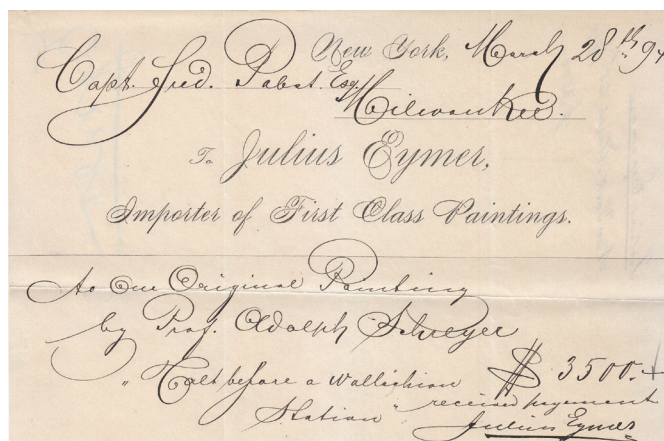 New York, March 28th 94
Capt. Fred. Pabst. Esq.
Milwaukee.
To Julius Eymer,
Importer of First Class Paintings.
to One Original Painting
by Prof. Adolph Schreyer
"Halt before a Wallachian $ 3500.-
Station" received payement
Julius Eymer